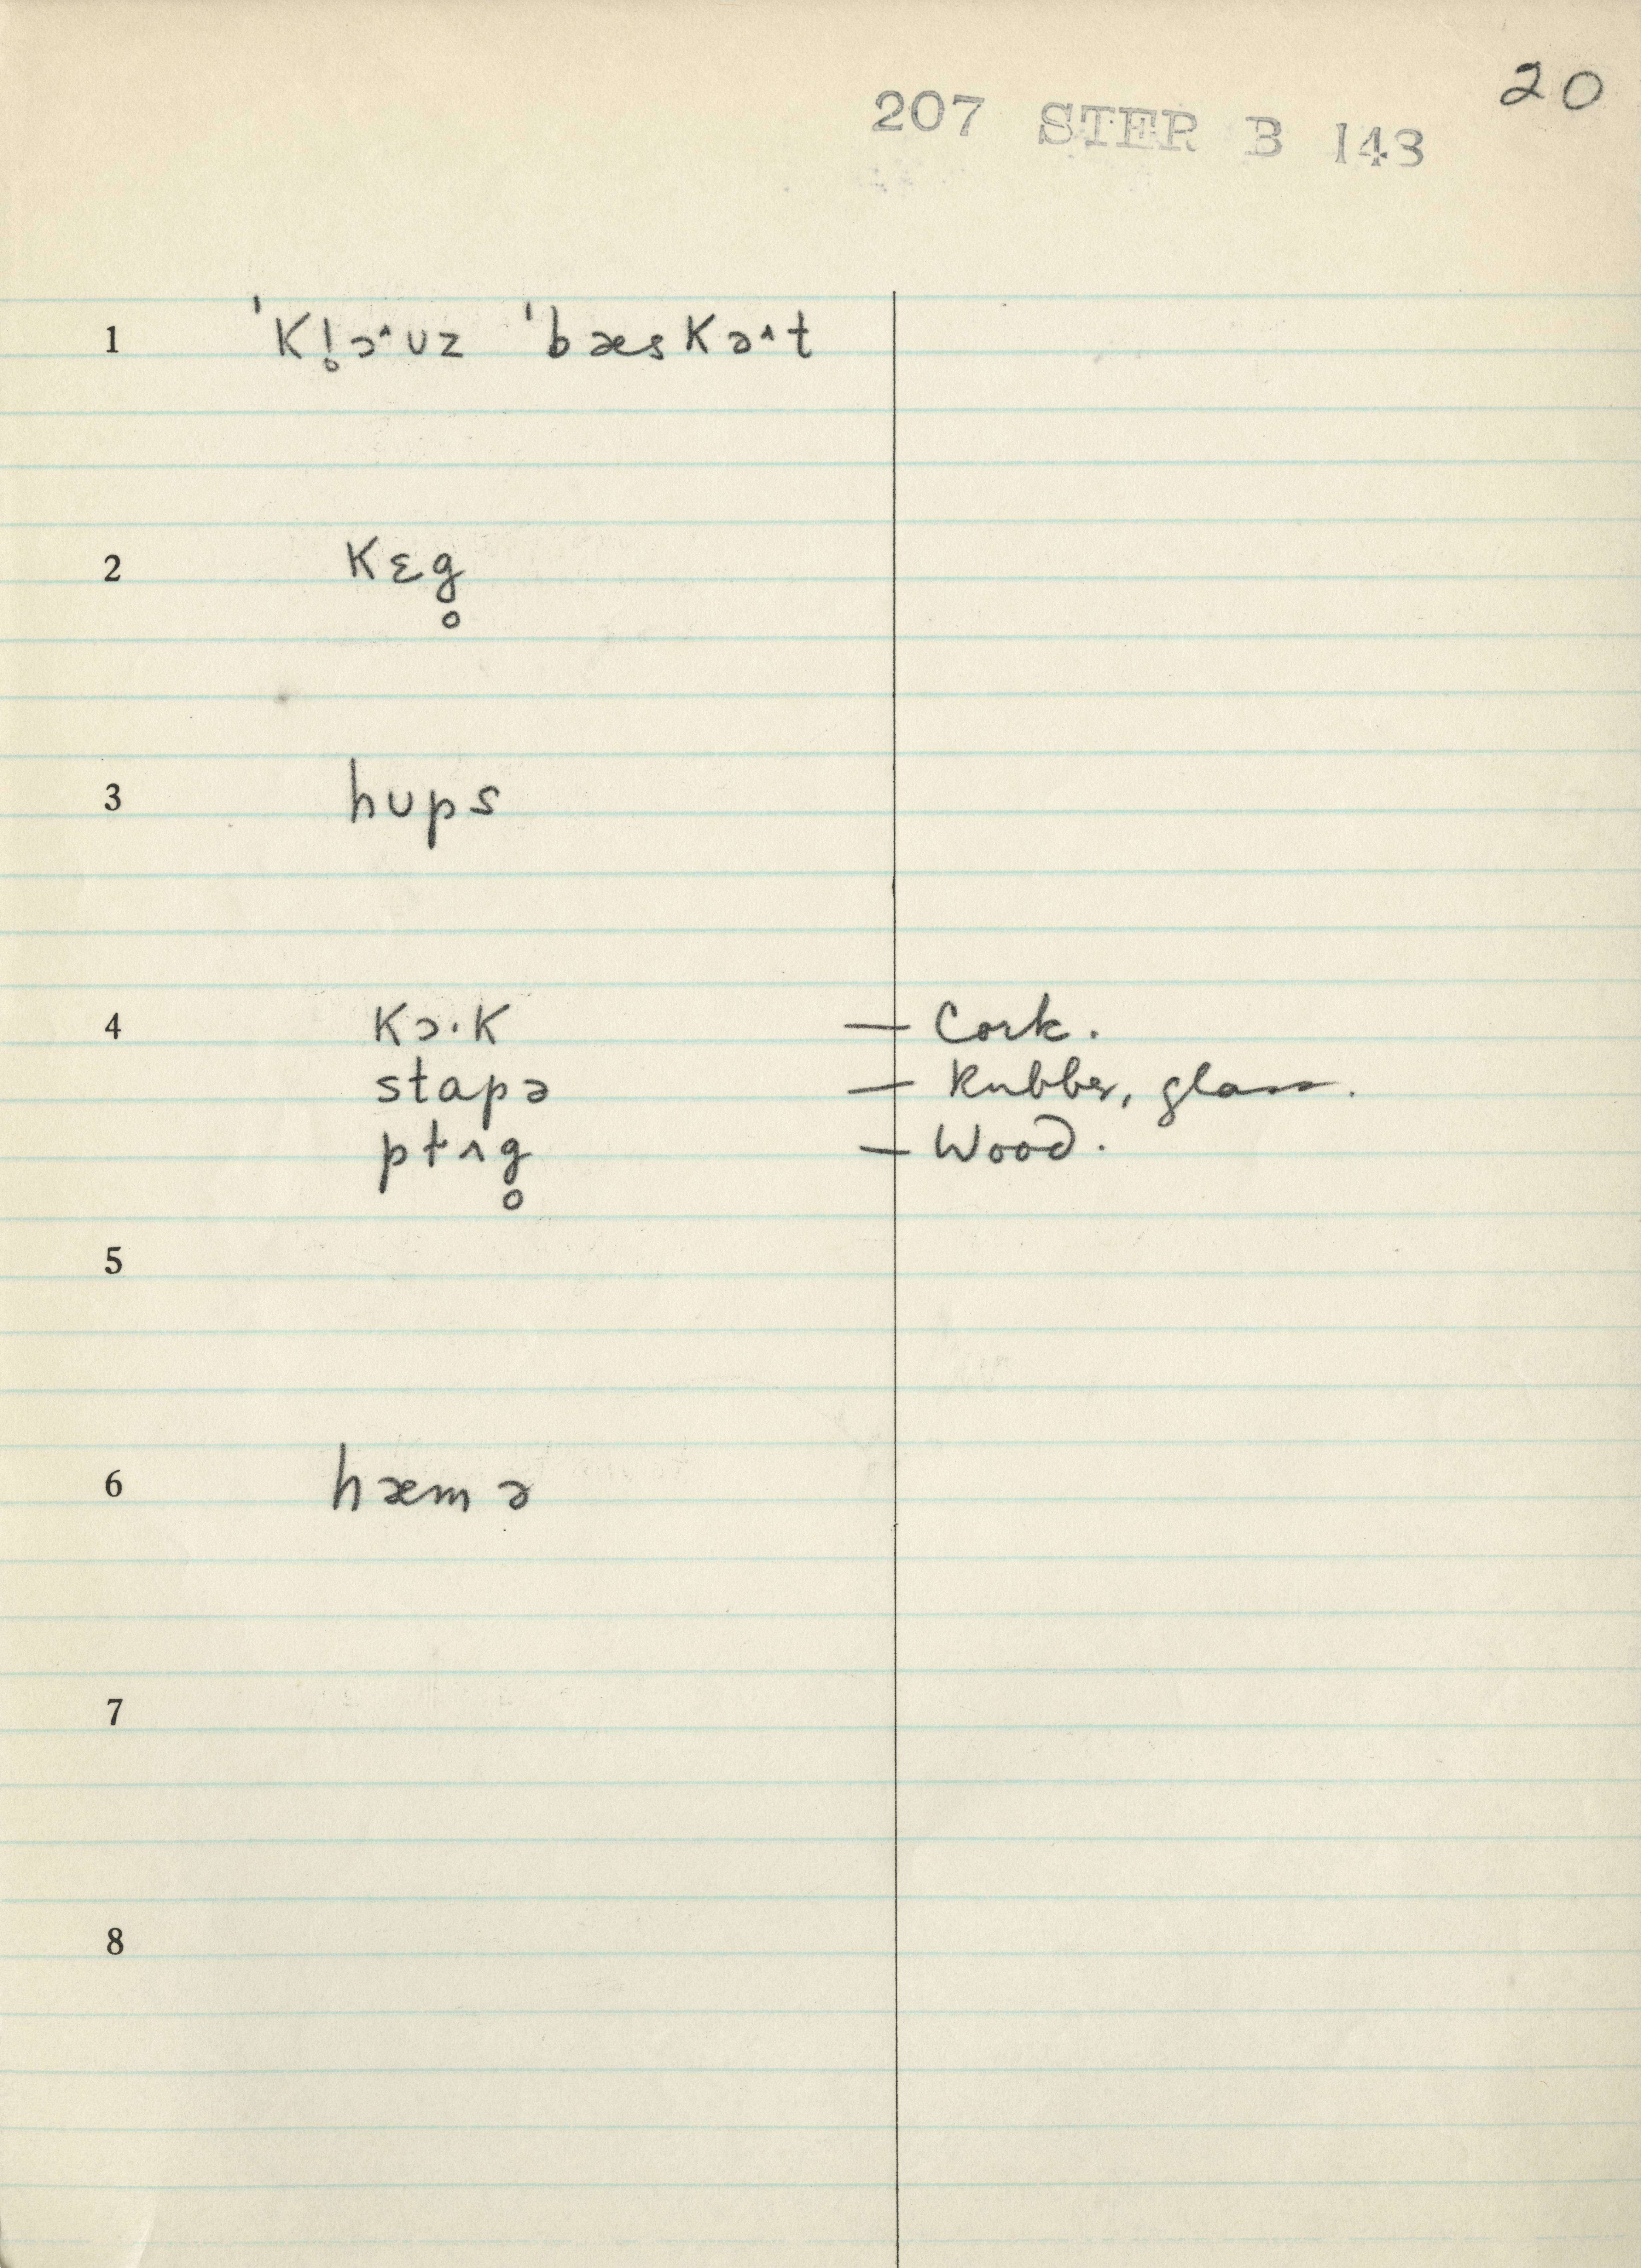 20
207 STER B 143
1 ˈkl̥ɔ˄ʊz ˈbæskə˄t
2 kɛg̥
3 hʊps
4 kɔ·k — Cork.
stapə — Rubber, glass.
pɫʌg̥ — Wood.
5
6 hæmə
7
8